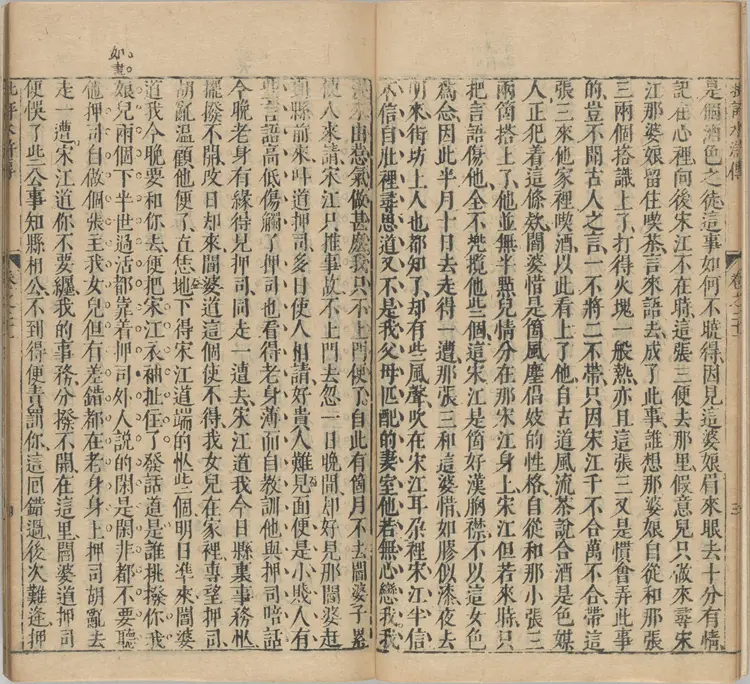 批評水滸傳
卷之二十
是個酒色之徒這事如何不曉得因見這婆娘眉來眼去十分有情
記在心裡向後宋江不在時這張三便去那里假意兒只做來尋宋
江那婆娘留住喫茶言來語去成了此事誰想那婆娘自從和那張
三兩個搭識上了打得火塊一般熱亦且這張三又是慣會弄此事
的豈不聞古人之言一不將二不帶只因宋江千不合萬不合帶這
張三來他家裡喫酒以此看上了他自古道風流茶說合酒是色媒
人正犯着這條欵閻婆惜是箇風塵倡妓的性格自從和那小張三
兩箇搭上了他並無半點兒情分在那宋江身上宋江但若來時只
把言語傷他全不兜攬他些個這宋江是箇好漢胸襟不以這女色
爲念因此半月十日去走得一遭那張三和這婆惜如膠似漆夜去
明來街坊上人也都知了却有些風聲吹在宋江耳朶裡宋江半信
不信自肚裡尋思道又不是我父母匹配的妻室他若無心戀我我
沒來由惹氣做甚麼我只不上門便了自此有箇月不去閻婆子累
使人來請宋江只推事故不上門去忽一日晚間却好見那閻婆赶
到縣前來叫道押司多日使人相請好貴人難見面便是小賤人有
些言語高低傷觸了押司也看得老身薄面自教訓他與押司陪話
今晚老身有緣得見押司同走一遭去宋江道我今日縣裏事務忙
擺撥不開改日却來閻婆道這個使不得我女兒在家裡專望押司
胡亂温顧他便了直恁地下得宋江道端的忙些個明日準來閻婆
道我今晚要和你去便把宋江衣袖扯住了發話道是誰挑撥你我
如畫
娘兒兩個下半世過活都靠着押司外人說的閑是閑非都不要聽
他押司自做個張主我女兒但有差錯都在老身身上押司胡亂去
走一遭宋江道你不要纏我的事務分撥不開在這里閻婆道押司
便悞了些公事知縣相公不到得便責罰你這回錯過後次難逢押
批評水滸傳